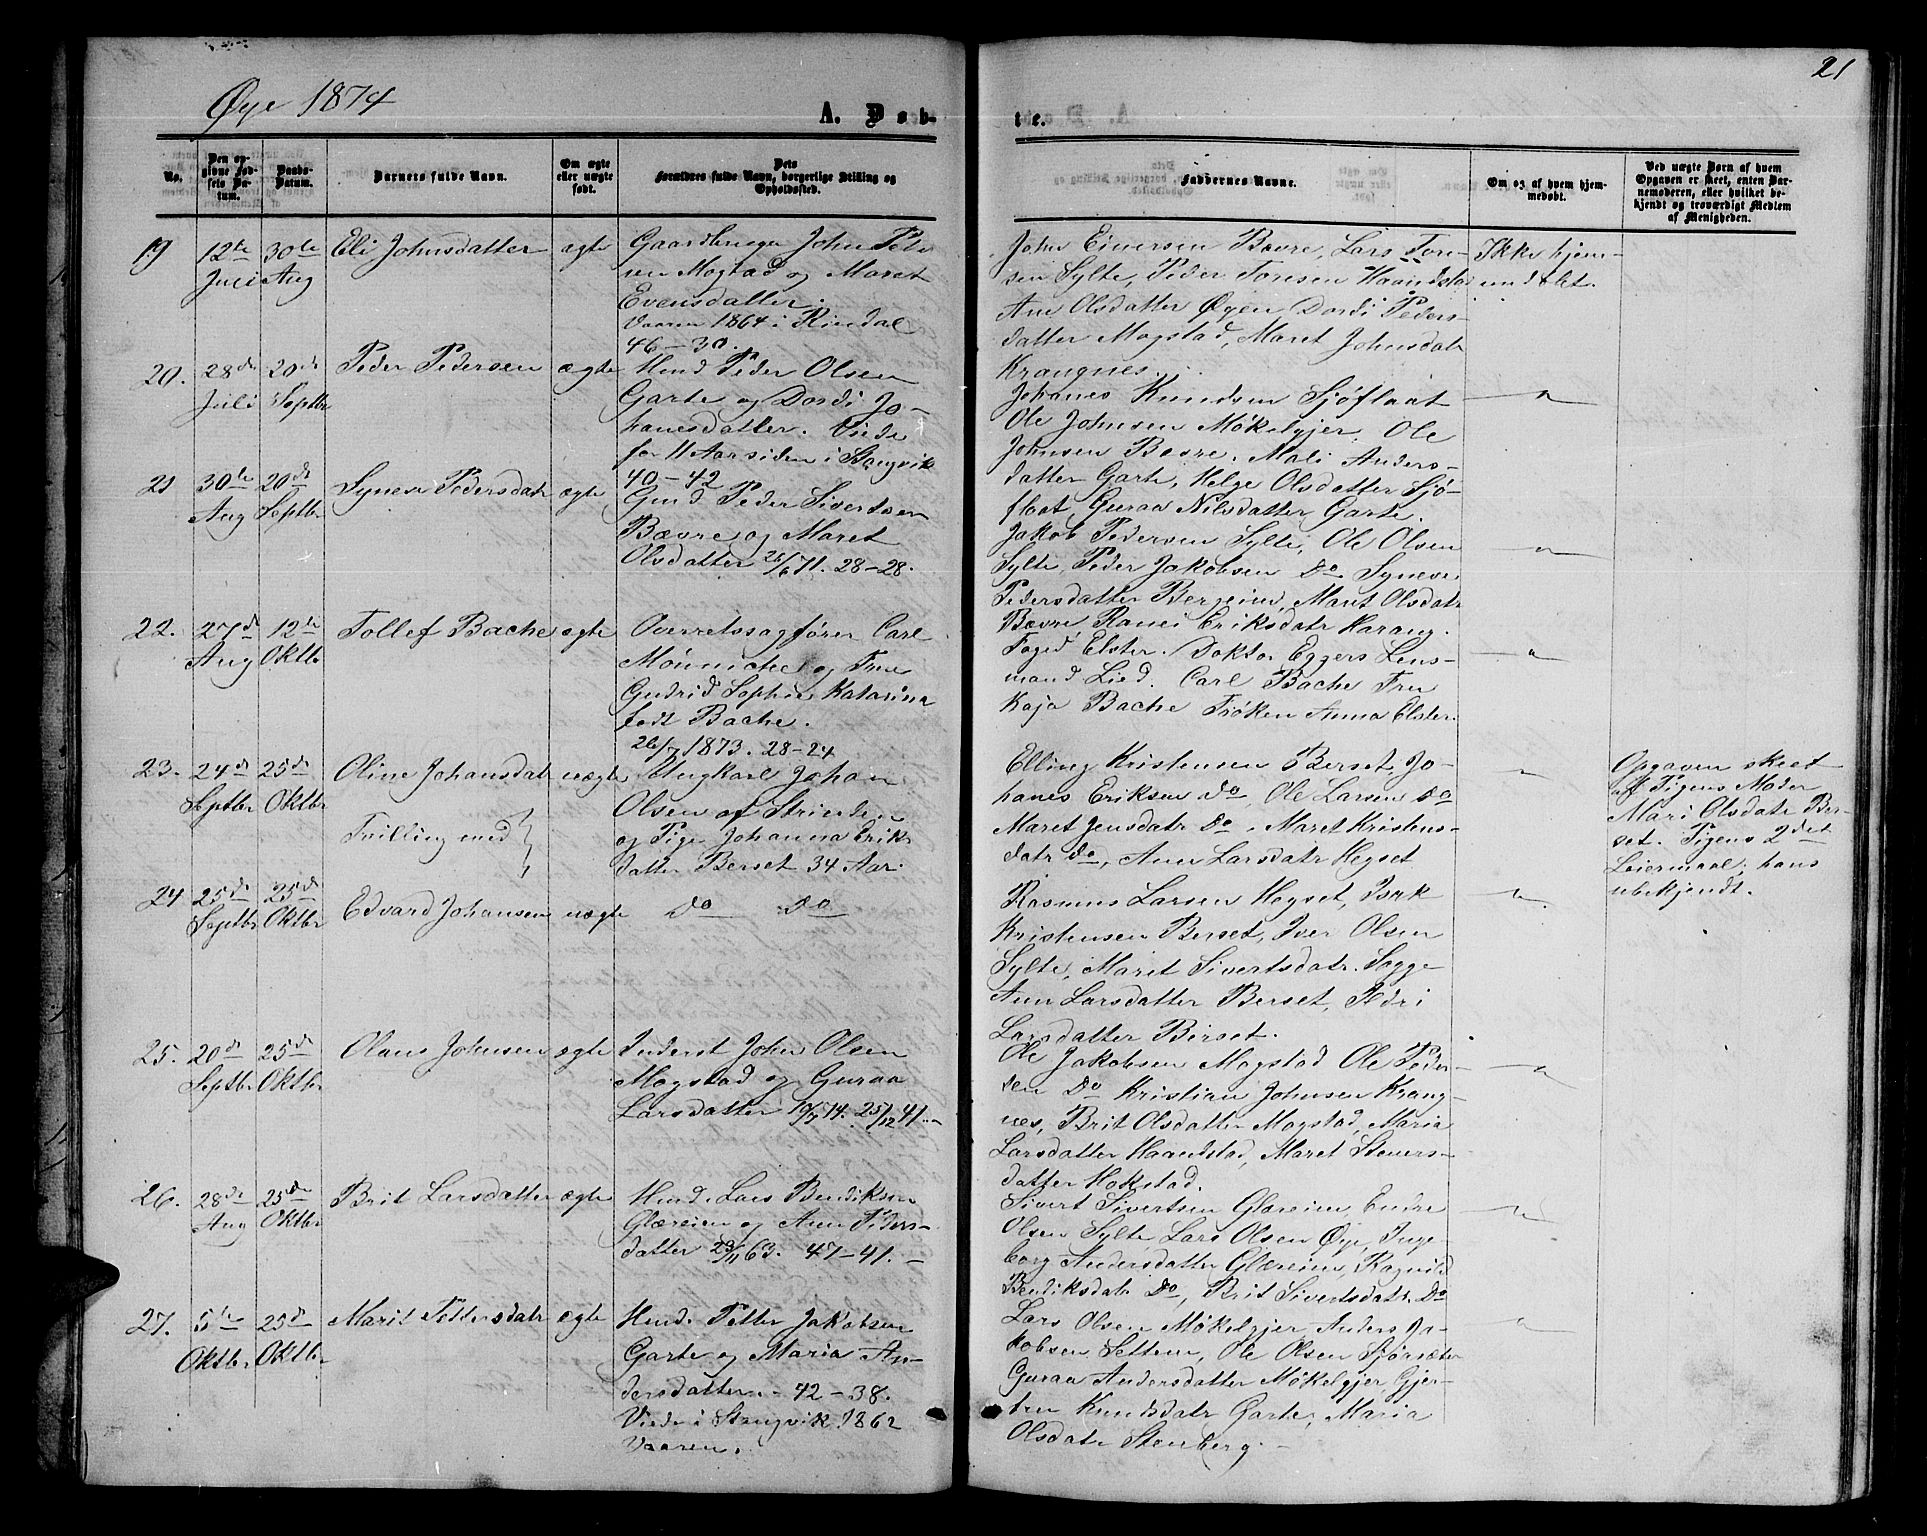 Øye 1874
21
A. Døb-
te.
No.
Den op-
givne Fød-
sels Da-
tum.
Daabs-
Datum.
Barnets fulde Navn.
Om ægte
eller uægte
født.
Dets
Forældres fulde Navn, borgerlige Stilling og
Opholdssted.
Faddernes Navne.
Om og af hvem hjem-
medøbt.
Ved uægte Børn af hvem
Opgaven er skeet, enten Bar-
nemoderen, eller hvilket be-
kjendt og troværdigt Medlem
af Menigheden.
19 12te Juli 30te Aug Eli Johnsdatter ægte
Gaardbruger John Peter-
sen Mogstad og Maret
Evensdatter.
Vaaren 1864 i Rindal
46-30.
John Einersen Bævre, Lars Tore-
sen Sylte, Peder Toresen Haandstad
Ane Olsdatter Øyen, Dordi Peders-
datter Mogstad, Maret Johnsdatr
Krangnes.
Ikke hjem-
medøbt.
20. 28de Juli 20de Septbr Peder Pedersen ægte
Hmd Peder Olsen
Garte og Dordi Jo-
hanesdatter. Viede
for 11 Aar siden i Stangvik
40-42
Johanes Knudsen Sjøflaat
Ole Johnsen Møkelgjer, Ole
Johnsen Bævre, Mali Anders-
datter Garte, Helge Olsdatter Sjø-
flaat, Guraa Nilsdatter Garte.
21 30te Aug 20de Septbr Syneve Pedersdatr ægte
Gmd Peder Sivertsen
Bævre og Maret
Olsdatter 26/6 71. 28-28.
Jakob Pedersen Sylte, Ole Olsen
Sylte, Peder Jakobsen Do Syneve
Pedersdatter Bergeim, Marit Olsdatr
Bævre Ranei Eriksdatr Harang.
22. 27de Aug 12te Oktbr Tollef Bache ægte
Overretssagfører Carl
Mönniche og Frue
Gudrid Sophie Katarina
født Bache.
26/7 1873. 28-24
Foged Elster. Doktor Eggers Lens-
mand Lied. Carl Bache Fru
Kaja Bache Frøken Anna Elster.
23. 24de Septbr 25de Oktbr Oline Johansdatr uægte
Tvilling med
Ungkarl Johan
Olsen af Strinden
og Pige Johanna Eriks
datter Berset 34 Aar.
Elling Kristensen Berset, Jo-
hanes Eriksen do, Ole Larsen do
Maret Jensdatr do, Maret Kristens-
datr do, Ane Larsdatr Hegset
Opgaven skeet
af Pigens Moder
Mari Olsdatr Ber-
set. Pigens 2det
Leiermaal, hans
ubekjendt.
24 25de Septbr 25de Oktbr Edvard Johansen uægte
do do
Rasmus Larsen Hegset, Isak
Kristensen Berset, Iver Olsen
Sylte, Maret Sivertsdatr. Sogge
Ane Larsdatter Berset, Pedri
Larsdatter Berset.
25. 20de Septbr 25de Oktbr Olaus Johnsen ægte
Inderst John Olsen
Mogstad og Guraa
Larsdatter 10/7 74. 25/12 41.
Ole Jakobsen Mogstad Ole Peder-
sen Do Kristian Johnsen Krang-
nes, Brit Olsdatter Mogstad, Maria
Larsdatter Haandstad, Maret Steners-
datter Hokstad.
26. 28de Aug 25de Oktbr Brit Larsdatter ægte
Hmd. Lars Bendiksen
Glæreim og Ane Peders-
datter 29/11 63. 47-41.
Sivert Sivertsen Glæreim, Endre
Olsen Sylte, Lars Olsen Øye, Inge-
borg Andersdatter Glæreim, Ragnild
Bendiksdatr Do, Brit Sivertsdatr. Do
27. 5te Oktbr 25de Oktbr Marit Pettersdatr ægte
Hmd. Petter Jakobsen
Garte og Maria An-
dersdatter. 42-38.
Viede i Stangvik 1862
Vaaren.
Lars Olsen Møkelgjer Anders Ja-
kobsen Settem, Ole Olsen Sjørsæter
Guraa Andersdatter Møkelgjer, Gjer-
trud Knudsdatr Garte, Maria
Olsdatr Stenberg.